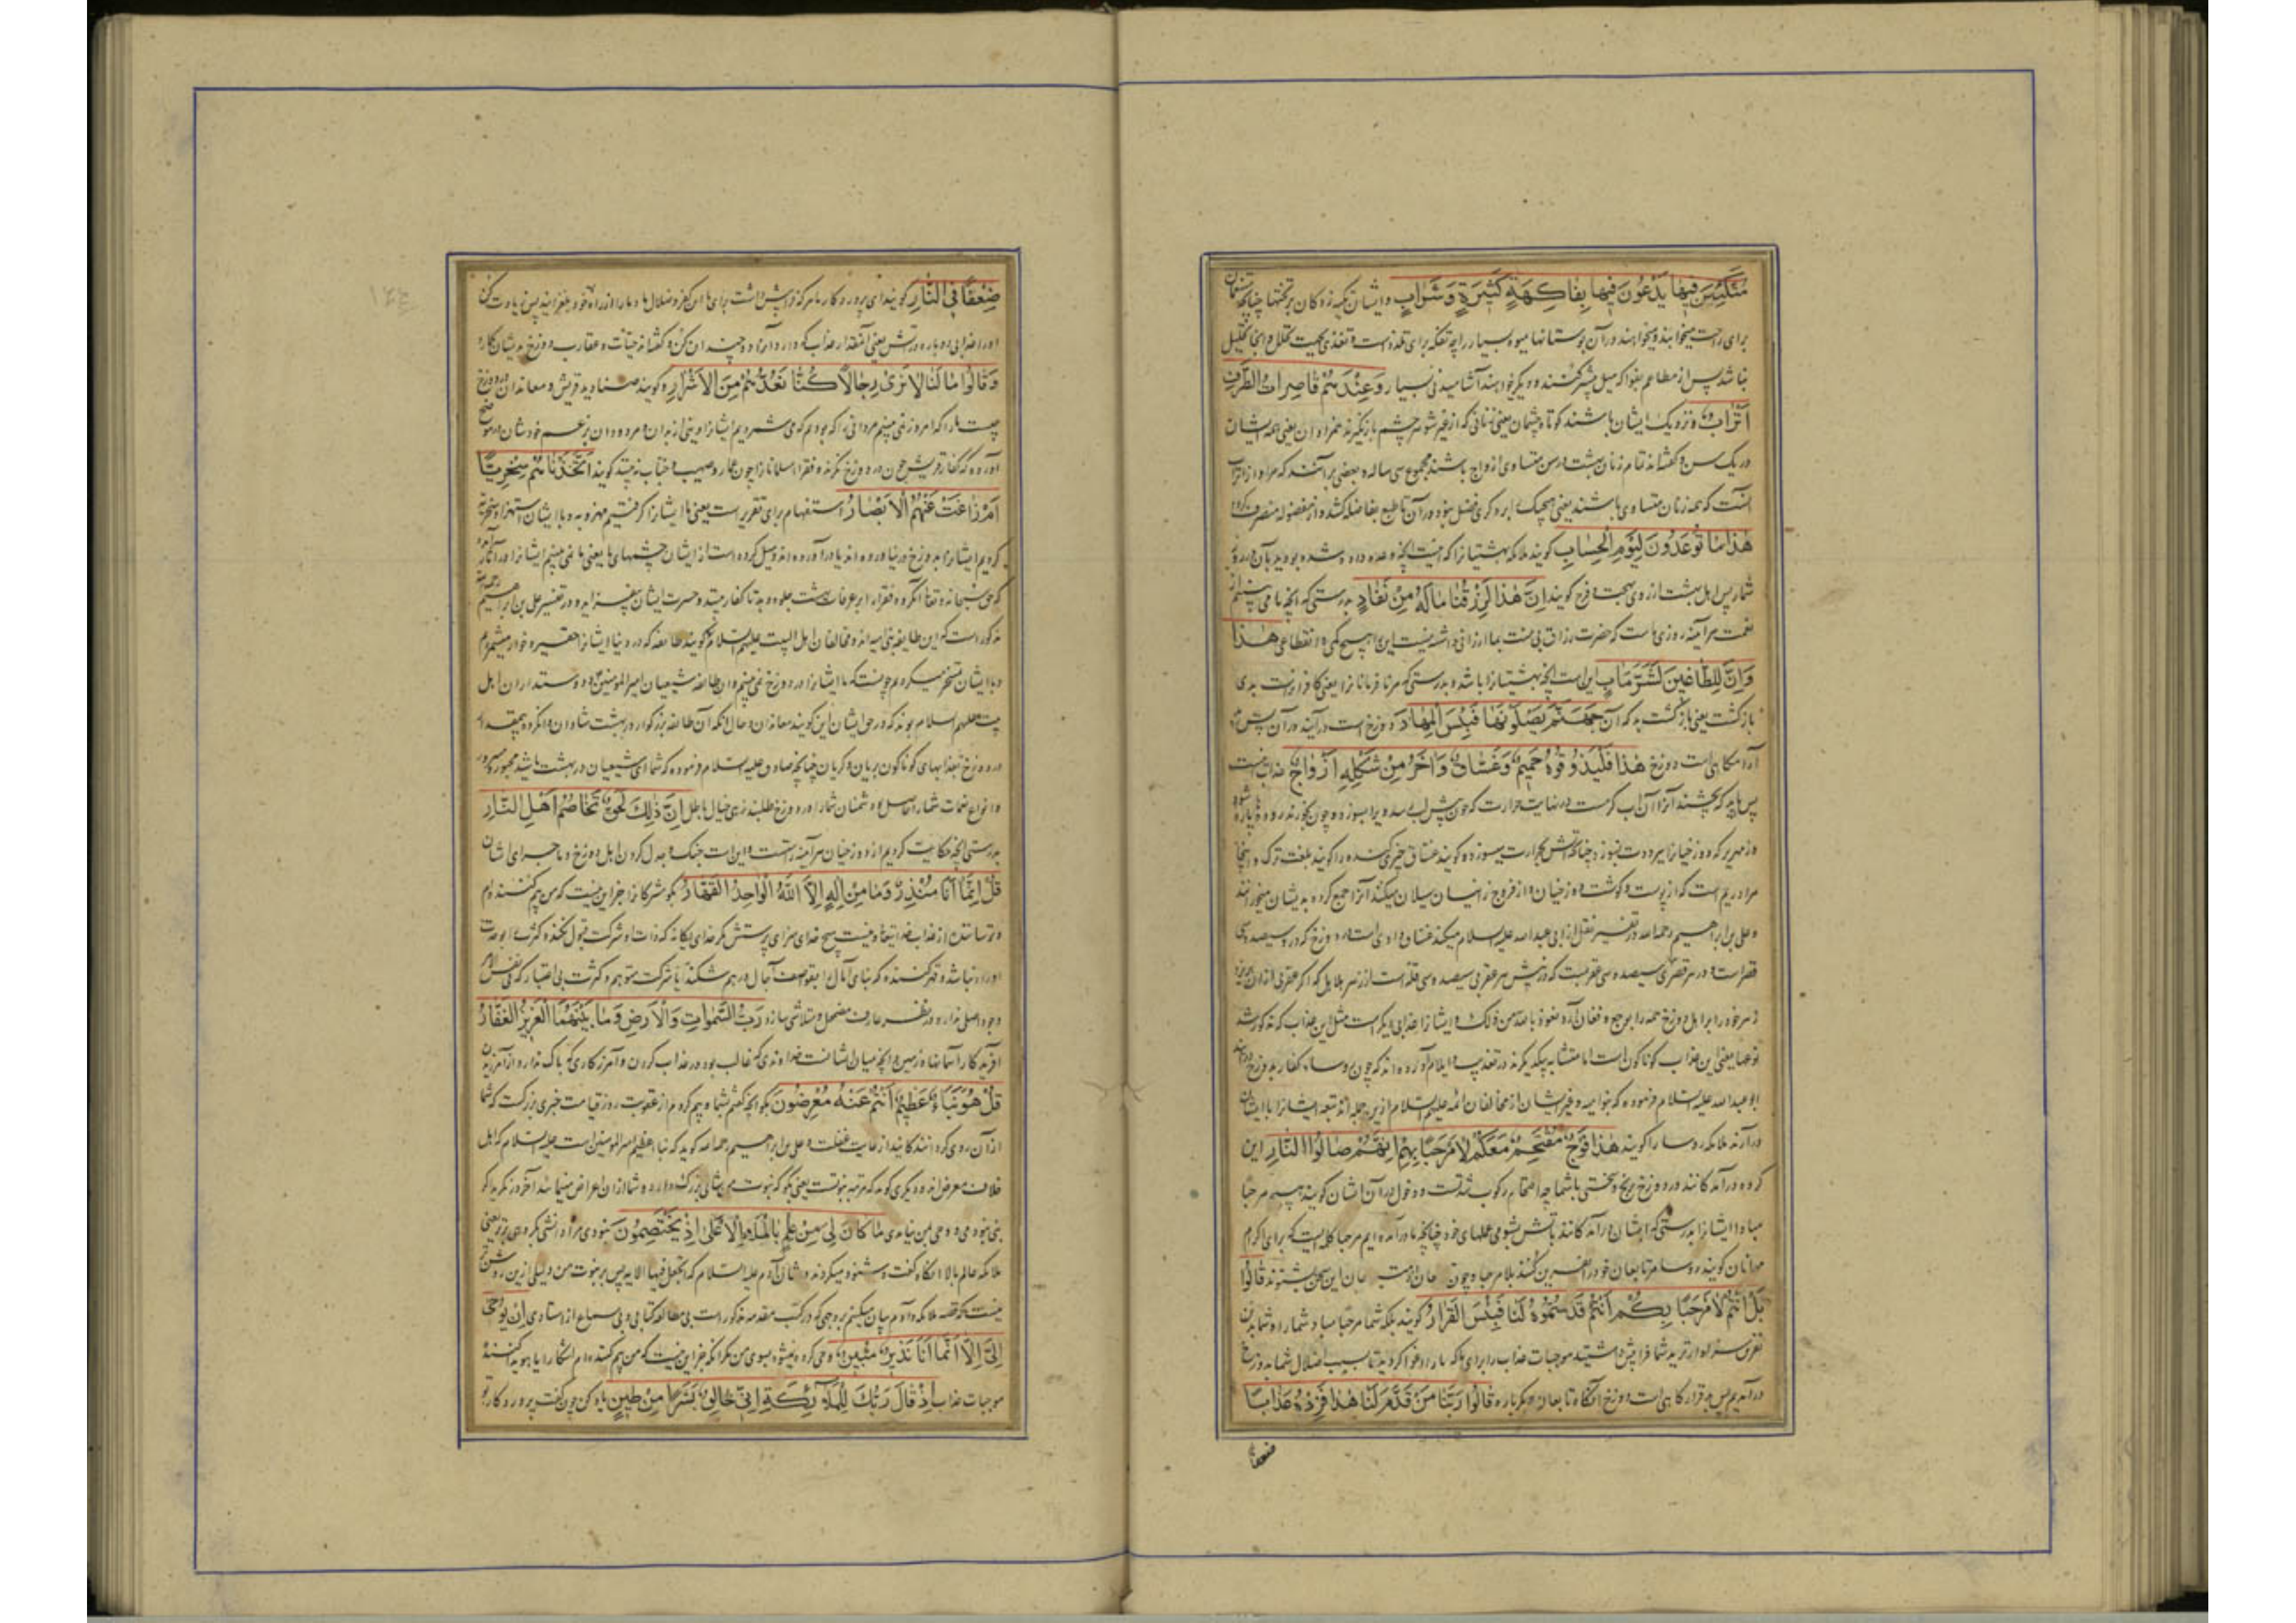 مُتَّكِئِينَ فِيهَا يَدْعُونَ فِيهَا بِفَاكِهَةٍ كَثِيرَةٍ وَشَرَابٍ و ایشان تکیه زدکان بر تختها چنانچه
برای راحت میخوابند و میخواهند در آن بوستانها میوه بسیار را چه تفکه برای تلذذ است و تغذی بجهت تحلل و آنجا تحلیل
نباشد پس از مطاعم بفواکه میل بیشتر کنند و دیگر خواهند آشامیدنی بسیار وَعِنْدَهُمْ قَاصِرَاتُ الطَّرْفِ
أَتْرَابٌ و نزدیک ایشان باشند کوتاه چشمان یعنی زنانی که از غیر شوهر چشم باز گیرند همزادان یعنی همه ایشان
در یک سن و گفته‌اند تمام زنان بهشت در سن متساوی ازواج باشند مجموع سی ساله و بعضی برآنند که مراد از اتراب
آنست که همه زنان متساوی باشند یعنی هیچیک را بر دیگری فضل نبود
هٰذَا مَا تُوعَدُونَ لِيَوْمِ الْحِسَابِ گویند ملائکه بهشتیانرا که اینست آنچه وعده داده شده بودید بآن
شمار پس اهل بهشت از روی بهجت و فرح گویند إِنَّ هٰذَا لَرِزْقُنَا مَا لَهُ مِنْ نَفَادٍ بدرستی که آنچه ما می بینیم از
نعمت هر آینه روزی ماست که حضرت رزاق بی منت بما ارزانی داشته نیست این را هیچ کمی و انقطاعی هٰذَا
وَإِنَّ لِلطَّاغِينَ لَشَرَّ مَآبٍ این است آنچه بهشتیانرا باشد و بدرستی که مر نافرمانانرا یعنی کافرانرا بدی
بازگشت یعنی بازگشت بد که آن جَهَنَّمَ يَصْلَوْنَهَا فَبِئْسَ الْمِهَادُ دوزخ است در آیند در آن پس بد
آرامگاهی است دوزخ هٰذَا فَلْيَذُوقُوهُ حَمِيمٌ وَغَسَّاقٌ وَآخَرُ مِنْ شَكْلِهِ أَزْوَاجٌ عذاب اینست
پس باید که بچشند آنرا آن آب گرمست در نهایت حرارت که چون پیش لب رسد ویرا بسوزد و چون بخورند روده‌ها پاره شود
و زمهریر که دوزخیانرا ببرودت بسوزد چنانچه آتش بحرارت میسوزد و گویند غساق چیزی گنده را گویند بلغت ترک و اینجا
مراد ریم است که از پوست و گوشت دوزخیان و از فروج زانیان سیلان میکند آنرا جمع کرده بدیشان میخورانند
و علی بن ابراهیم رحمه الله در تفسیر نقل از ابی عبدالله علیه السلام میکند غساق وادی است در دوزخ که در و سیصد و سی
قصر است و در هر قصری سیصد و سی عقربست که در نیش هر عقربی سیصد و سی قله است از زهر هلاهل که اگر عقربی از آن
زهر خود را بر اهل دوزخ همه را نعوذ بالله من ذلک و ایشانرا عذابی دیگر است مثل این عذاب که مذکور شد
نوعها یعنی این عذاب گوناگون است اما متشابه یکدیگرند در تعذیب و ایلام آورده اند که چون رؤسا کفار بدوزخ درآیند
ابو عبدالله علیه السلام فرموده که بنو امیه و غیر ایشان از مخالفان ائمه علیهم السلام ازین جمله اند تبعه ایشانرا با ایشان
در آرند ملائکه رؤسا را گویند هٰذَا فَوْجٌ مُقْتَحِمٌ مَعَكُمْ لَا مَرْحَبًا بِهِمْ إِنَّهُمْ صَالُوا النَّارِ این
گروه درآیندگانند در دوزخ برنج و سختی با شما چه اقتحام رکوب شدتست و دخول در آن ایشان گویند هیچ مرحبا
مباد ایشانرا بدرستی که ایشان درآیندگانند بآتش بشومی عملهای خود چنانچه ما درآمده ایم مرحبا کلمه ایست که برای اکرام
مهمانان گویند رؤسا مر تابعان خود را نفرین کنند بلا مرحبا و چون این سخن بشنوند قَالُوا
بَلْ أَنْتُمْ لَا مَرْحَبًا بِكُمْ أَنْتُمْ قَدَّمْتُمُوهُ لَنَا فَبِئْسَ الْقَرَارُ گویند بلکه شما مرحبا مباد شما را و شما بدین
نفرین سزاوارترید شما فرا پیش داشتید موجبات عذاب را برای ما که ما را اغوا کردید تا بسبب اضلال شما بدوزخ
درآمدیم پس بد قرارگاهی است دوزخ آنگاه تابعان دیگر باره قَالُوا رَبَّنَا مَنْ قَدَّمَ لَنَا هٰذَا فَزِدْهُ عَذَابًا
ضعفا
ضِعْفًا فِي النَّارِ گویند ای پروردگار ما هر که فرا پیش داشت برای ما این کفر و ضلال ما و ما را از راه خود بلغزانید پس زیادت کن
او را عذابی دوباره در آتش یعنی آنقدار عذاب که دارد آنرا دو چندان کن و گفته‌اند حیات و عقارب دوزخ بدیشان گمارد
وَقَالُوا مَا لَنَا لَا نَرَىٰ رِجَالًا كُنَّا نَعُدُّهُمْ مِنَ الْأَشْرَارِ و گویند صنادید قریش و معاندان در دوزخ
چیست ما را که امروز نمی بینیم مردانی را که بودیم که می شمردیم ایشانرا در دنیا از بدان و مردودان بزعم خودشان
آورده که کفار قریش چون در دوزخ نگرند و فقراء مسلمانانرا چون عمار و صهیب و خباب نه بینند گویند أَتَّخَذْنَاهُمْ سِخْرِيًّا
أَمْ زَاغَتْ عَنْهُمُ الْأَبْصَارُ استفهام برای تقریر است یعنی ما ایشانرا گرفتیم مهزوبه و با ایشان استهزا و سخریه
کردیم ایشانرا بدوزخ در نیاورده اند یا درآورده اند و میل کرده است از ایشان چشمهای ما یعنی ما نمی بینیم ایشانرا
که حق سبحانه و تعالی آنگروه فقرا را بر غرفات بهشت جلوه دهد تا کفار بینند و حسرت ایشان بیفزاید و در تفسیر علی بن ابراهیم رحمه الله
مذکور است که این طایفه بنی امیه اند و مخالفان اهل البیت علیهم السلام که گویند طایفه که در دنیا ایشانرا حقیر و خوار میشمردیم
و با ایشان تمسخر میکردیم چونست که ما ایشانرا در دوزخ نمی بینیم و آن طایفه شیعیان امیر المومنین و دوستداران اهل
بیت علیهم السلام بوند که در حق ایشان این گویند معاندان و حال آنکه آن طایفه بزرگوار در بهشت شادان و آنگروه بیمقدار
در دوزخ بعذابهای گوناگون بریان و گریان چنانچه صادق علیه السلام فرموده که شما ای شیعیان در بهشت باشید محبور و مسرور
و انواع نعمات شما را حاصل و دشمنان شما را در دوزخ طلبند زهی خیال باطل إِنَّ ذٰلِكَ لَحَقٌّ تَخَاصُمُ أَهْلِ النَّارِ
بدرستی آنچه حکایت کردیم از دوزخیان هر آینه راستست و این است جنگ و جدل کردن اهل دوزخ و ماجرای ایشان
قُلْ إِنَّمَا أَنَا مُنْذِرٌ وَمَا مِنْ إِلٰهٍ إِلَّا اللَّهُ الْوَاحِدُ الْقَهَّارُ بگو مشرکانرا جز این نیست که من بیم کننده ام
و ترساننده از عذاب خدایتعالی و نیست هیچ خدای سزای پرستش مگر خدای یگانه که ذات او شرکت قبول نکند و کثرت را بوحدت
او راه نباشد و قهر کننده که بنای آمال را بقواصف آجال درهم شکند یا شرکت متوهم و کثرت بی اعتبار که فی نفس الامر
وجود اصلی ندارد در نظر عارف مضمحل و متلاشی سازد رَبُّ السَّمٰوَاتِ وَالْأَرْضِ وَمَا بَيْنَهُمَا الْعَزِيزُ الْغَفَّارُ
آفریدگار آسمانها و زمین و آنچه میان ایشانست خداوندی که غالب بود در عذاب کردن و آمرزگاری که باک ندارد از آمرزیدن
قُلْ هُوَ نَبَأٌ عَظِيمٌ أَنْتُمْ عَنْهُ مُعْرِضُونَ بگو آنچه گفتم شما را و بیم کردم از عقوبت روز قیامت خبری بزرگست که شما
از آن روی گردانندگانید از غایت غفلت و علی بن ابراهیم رحمه الله گوید که نبأ عظیم امیر المومنین است علیه السلام که اهل
خلاف معرض اند و دیگری گوید که مرتبه نبوتست یعنی بگو که نبوت من شانی بزرگ دارد و شما از آن اعراض مینمائید
نبی نبودمی و وحی بمن نیامدی مَا كَانَ لِيَ مِنْ عِلْمٍ بِالْمَلَإِ الْأَعْلَىٰ إِذْ يَخْتَصِمُونَ نبودی مرا دانشی بگروهی برتر یعنی
ملائکه عالم بالا آنگاه که گفت و شنود میکردند در شان آدم علیه السلام که اتجعل فیها الایه پس بر نبوت من دلیلی ازین روشنتر
نیست که قصه ملائکه و آدم بیان میکنم بر وجهی که در کتب مقدمه مذکور است بی مطالعه کتابی و بی سماع از استادی إِنْ يُوحَىٰ
إِلَيَّ إِلَّا أَنَّمَا أَنَا نَذِيرٌ مُبِينٌ وحی کرده نمیشود بسوی من مگر آنکه جز این نیست که من بیم کننده ام آشکارا یا هویدا کننده
موجبات عذاب إِذْ قَالَ رَبُّكَ لِلْمَلَائِكَةِ إِنِّي خَالِقٌ بَشَرًا مِنْ طِينٍ یاد کن چون گفت پروردگار تو